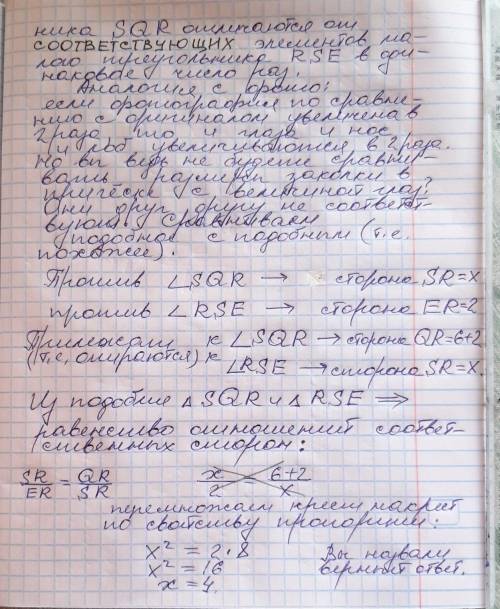 ника SQR отличаются от
СООТВЕТСТВУЮЩИХ элементов ма-
лого треугольника RSE в оди-
наковое число раз.
Аналогия с фото:
если фотография по сравне-
нию с оригиналом увеличена в
2 раза, то и глаза и нос
и лоб увеличиваются в 2 раза.
Но вы ведь не будете сравни-
вать размеры заколки в
причёске с величиной глаз?
Они друг другу не соответст-
вуют. Сравниваем
подобное с подобным (т.е.
похожее).
Против ∠SQR → сторона SR=x
против ∠RSE → сторона ER=2
Прилегают к ∠SQR → сторона QR=6+2
(т.е. опираются) к
∠RSE → сторона SR=x.
Из подобия △SQR и △RSE ⟹
равенство отношений соответ-
ственных сторон:
SR/ER = QR/SR x/2 = 6+2/x
перемножаем крест накрест
по свойству пропорции:
x² = 2·8 Вы назвали
x² = 16 верный ответ.
x = 4.